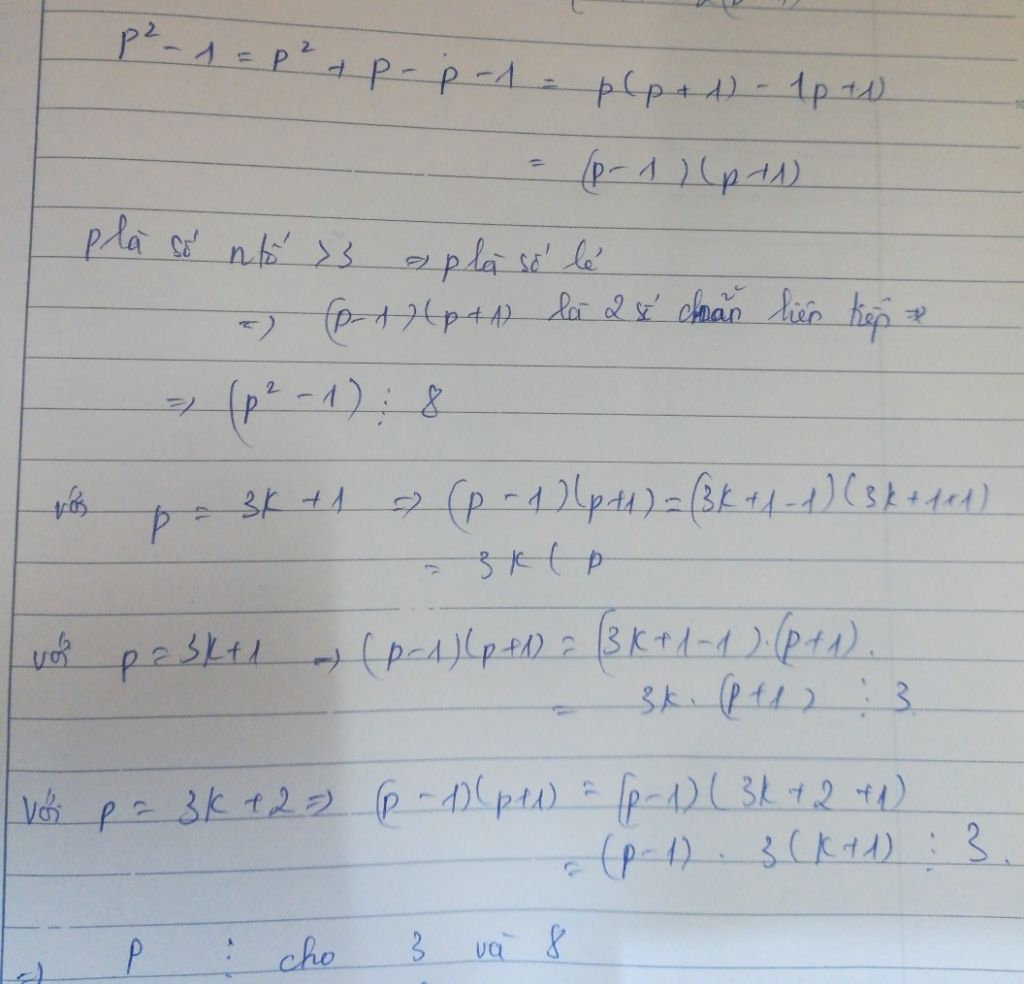 p² - 1 = p² + p - p - 1 = p(p + 1) - 1p + 1)
= (p - 1)(p + 1)
p là số ntố >3 => p là số lẻ
=> (p - 1)(p + 1) là 2 số chẵn liên tiếp =>
=> (p² - 1) ⋮ 8
với p = 3k + 1 => (p - 1)(p+1) = (3k + 1 - 1)(3k + 1 + 1)
= 3k ( p
với p = 3k+1 => (p-1)(p+1) = (3k+1-1).(p+1).
= 3k. (p+1) ⋮ 3
Với p = 3k + 2 => (p - 1)(p+1) = (p-1)(3k + 2 + 1)
= (p-1) . 3(k+1) ⋮ 3.
=> p ⋮ cho 3 và 8